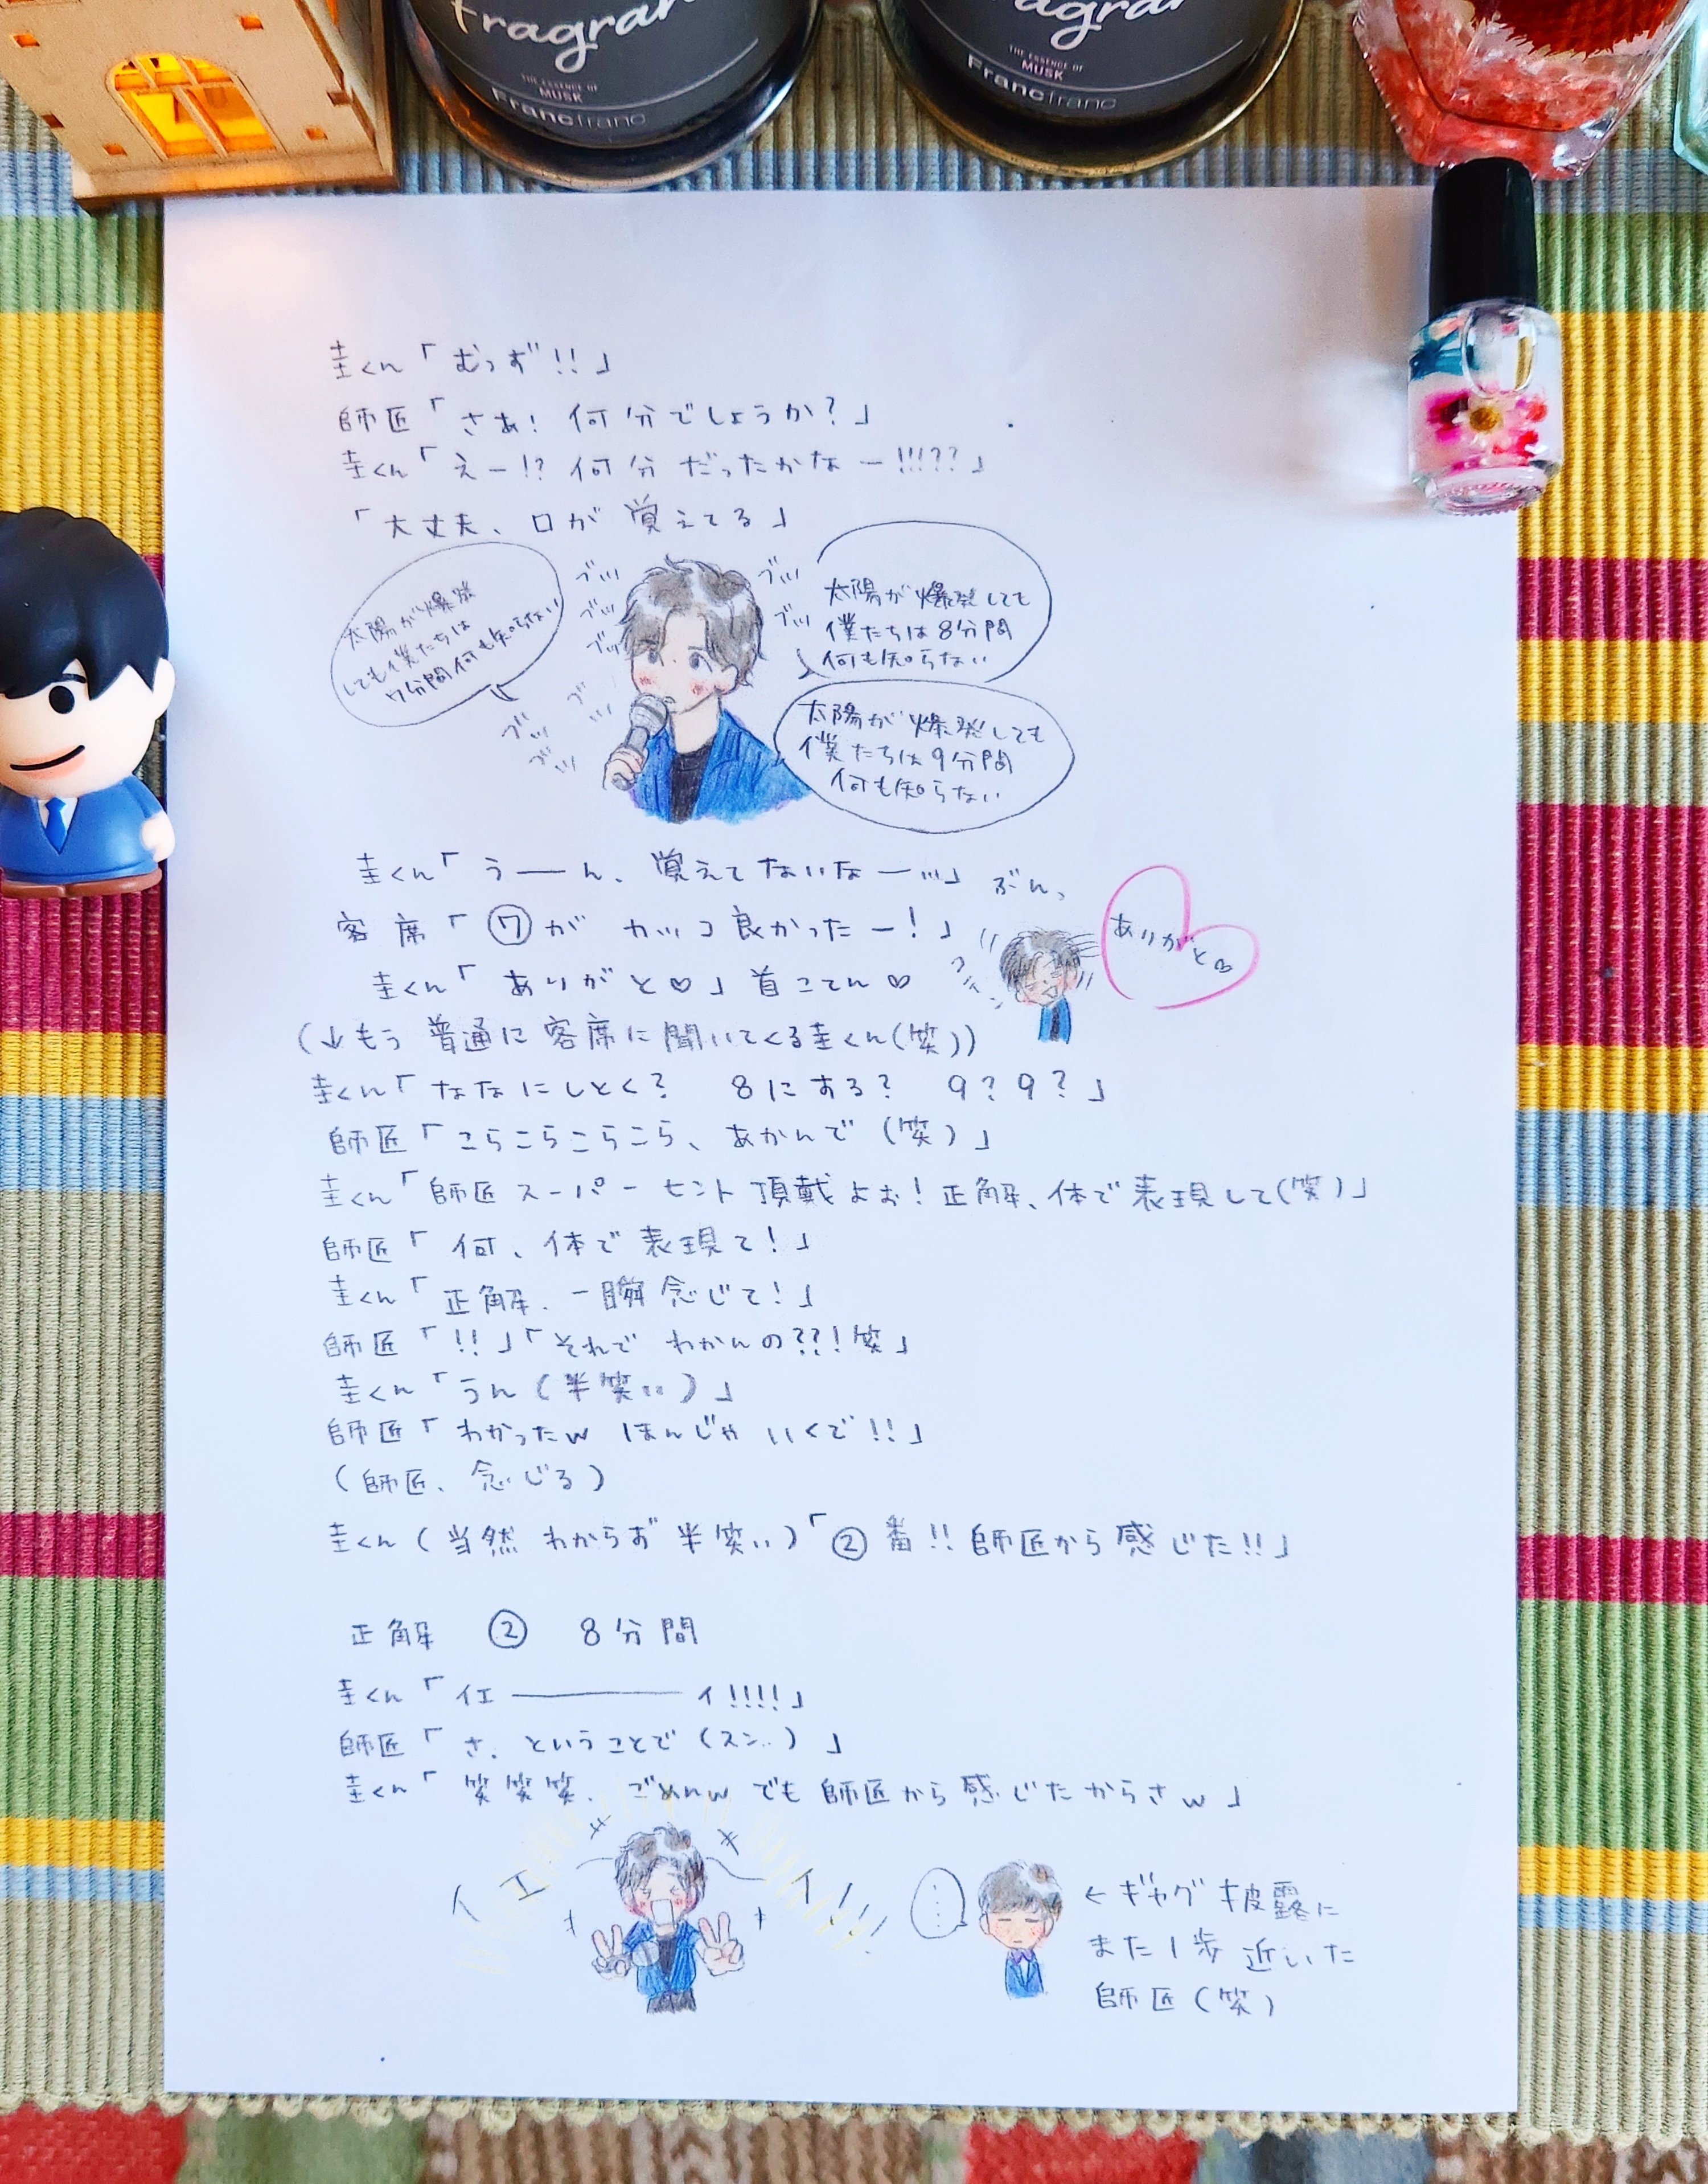 fragran
THE ESSENCE OF
MUSK
Francfranc
agran
THE ESSENCE OF
MUSK
Francfranc
圭くん「むっず!!」
師匠「さぁ! 何分でしょうか?」
圭くん「えー!? 何分だったかなー!!!??」
「大丈夫、口が覚えてる」
太陽が爆発
しても僕たちは
7分間何も知らない
ブツ
ブツ
ブツ
ブツ
ブツ
ブツ
ブツ
ブツ
太陽が爆発しても
僕たちは8分間
何も知らない
太陽が爆発しても
僕たちは9分間
何も知らない
圭くん「うーん、覚えてないなー…」 ぶん、
客席「⑦がカッコ良かったー!」
圭くん「ありがと♡」首こてん♡
こてん
ありがと♡
(↓もう普通に客席に聞いてくる圭くん(笑))
圭くん「ななにしとく? 8にする? 9?9?」
師匠「こらこらこらこら、あかんで(笑)」
圭くん「師匠スーパーヒント頂戴よぉ!正解、体で表現して(笑)」
師匠「何、体で表現て!」
圭くん「正解、一瞬念じて!」
師匠「!!」「それでわかんの??!笑」
圭くん「うん(半笑い)」
師匠「わかったw ほんじゃいくで!!」
(師匠、念じる)
圭くん(当然わからず半笑い)「②番!!師匠から感じた!!」
正解 ② 8分間
圭くん「イエ――――イ!!!!」
師匠「さ、ということで(スン..)」
圭くん「笑笑笑、ごめんw でも師匠から感じたからさw」
イエーイ!!!
……
←ギャグ披露に
また1歩近いた
師匠(笑)